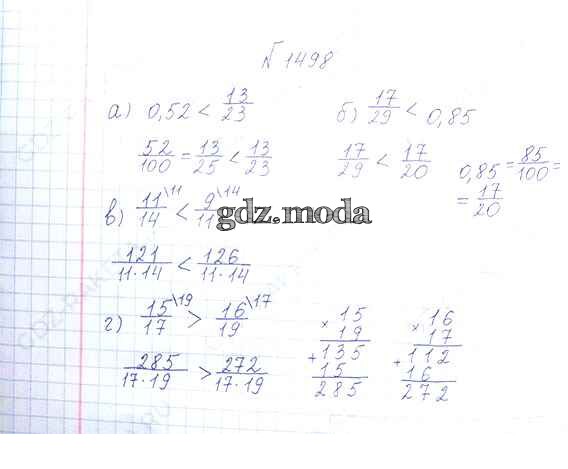 N 1498
а) 0,52 < 13/23 б) 17/29 < 0,85
52/100 = 13/25 < 13/23 17/29 < 17/20 0,85 = 85/100 =
= 17/20
в) 11/14 \11 < 9/11 \14
gdz.moda
121/11·14 < 126/11·14
г) 15/17 \19 > 16/19 \17
285/17·19 > 272/17·19
× 15
19
+ 135
15
285
× 16
17
+ 112
16
272